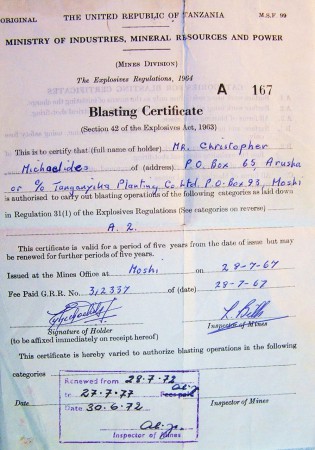 ORIGINAL THE UNITED REPUBLIC OF TANZANIA M.S.F 99
MINISTRY OF INDUSTRIES, MINERAL RESOURCES AND POWER
(MINES DIVISION)
The Explosives Regulations, 1964
A 167
Blasting Certificate
(Section 42 of the Explosives Act, 1963)
This is to certify that (full name of holder) MR. Christopher
Michaelides of (address) P.O. Box 65 Arusha
or % Tanganyika Planting Co. Ltd. P.O. Box 93, Moshi
is authorised to carry out blasting operations of the following categories as laid down
in Regulation 31(1) of the Explosives Regulations (See categories on reverse)
A. 2.
This certificate is valid for a period of five years from the date of issue but may
be renewed for further periods of five years.
Issued at the Mines Office at Moshi on 29-7-67
Fee Paid G.R.R. No. 312337 of (date) 29-7-67
Signature of Holder Inspector of Mines
(to be affixed immediately on receipt hereof)
This certificate is hereby varied to authorize blasting operations in the following
categories
Renewed from 28.7.72
to 27.7.77
Date Date 30.6.72 Inspector of Mines
Inspector of Mines